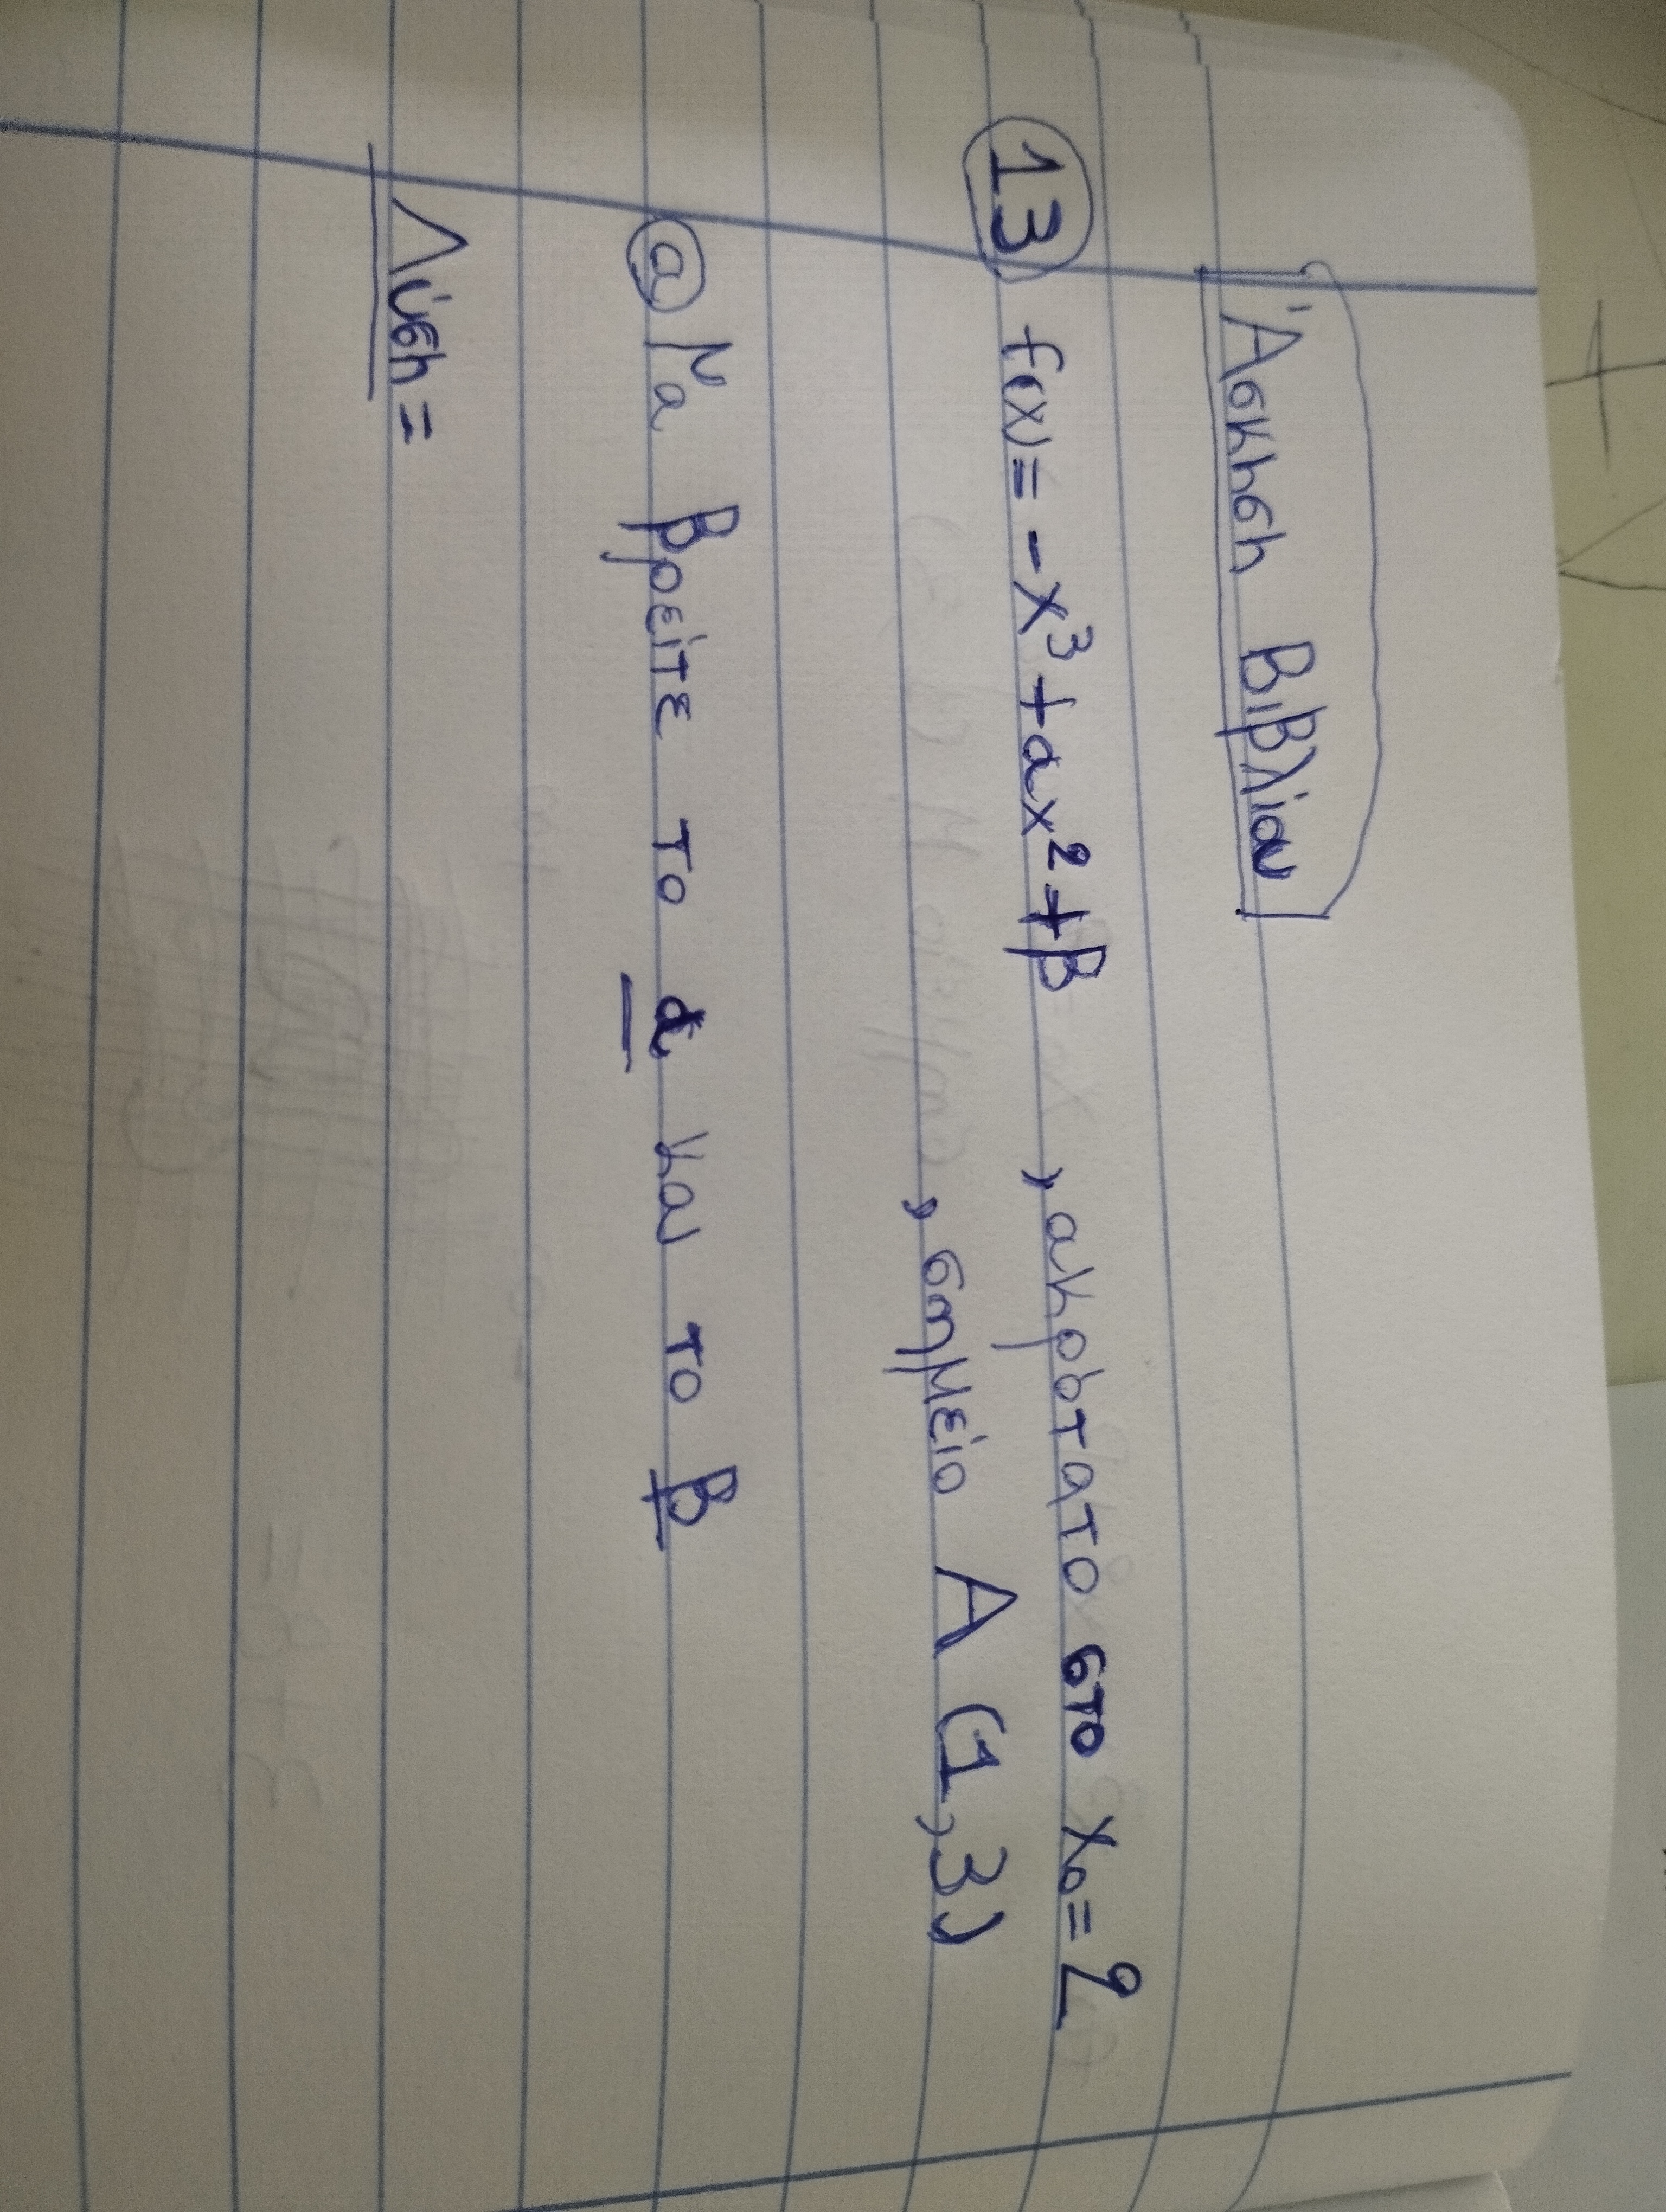 Άσκηση Βιβλίου
13 f(x)= -x³+αx²+β , ακρότατο στο x₀=2
, σημείο A (1,3)
α Να βρείτε το α και το β
Λύση=